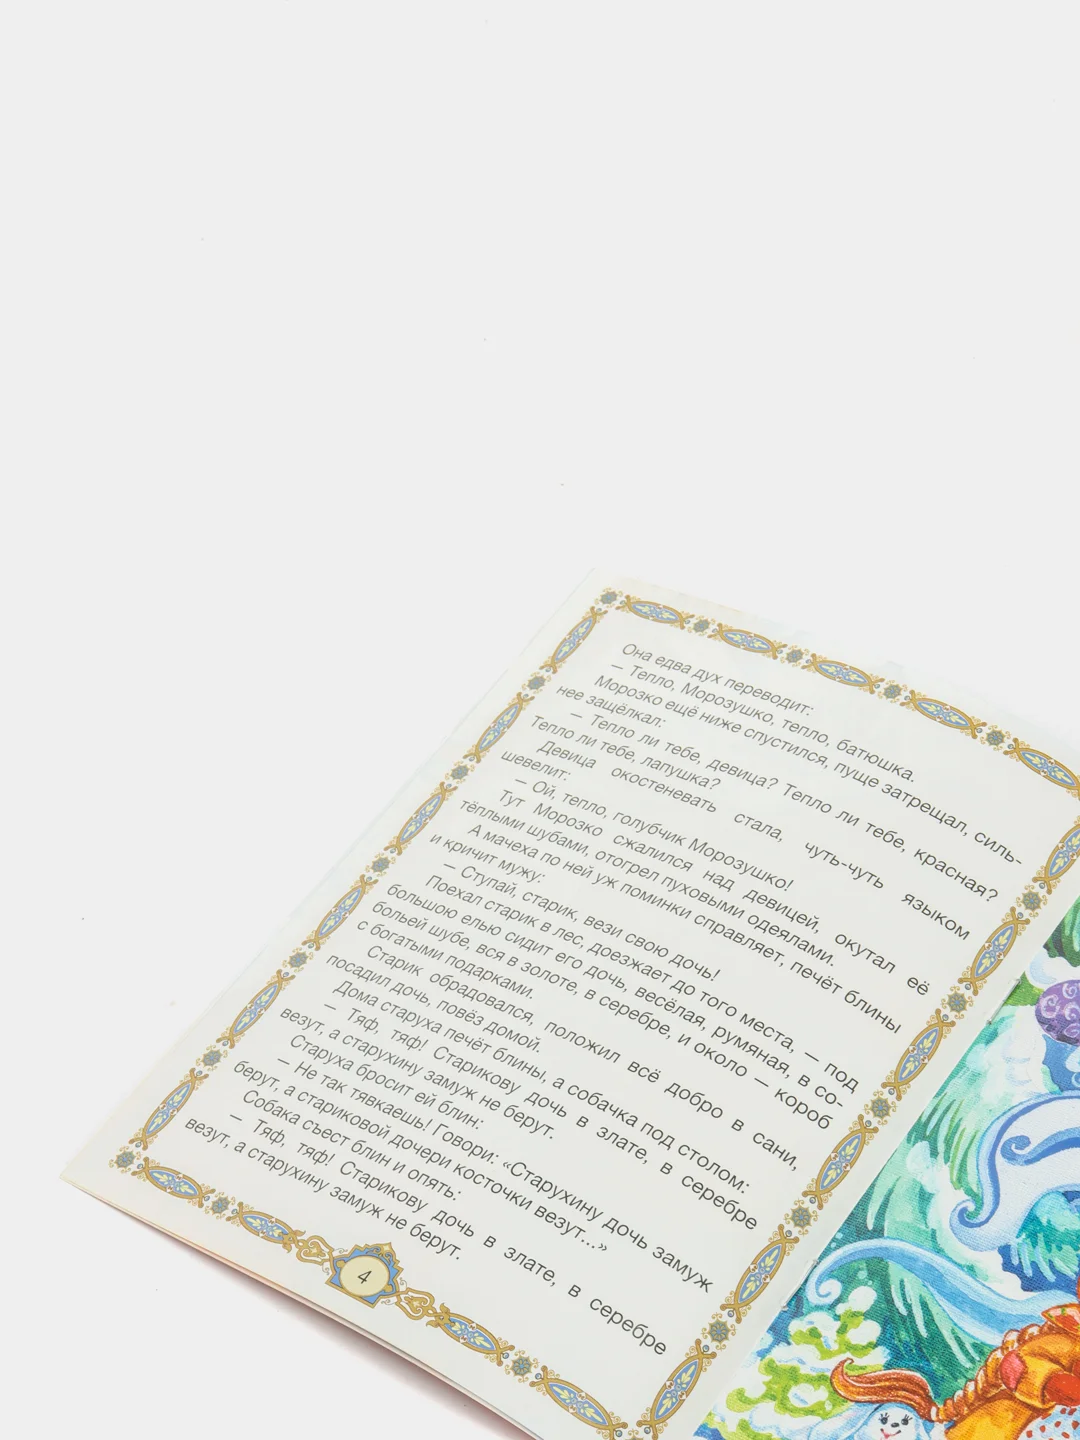 Она едва дух переводит:
— Тепло, Морозушко, тепло, батюшка.
Морозко ещё ниже спустился, пуще затрещал, силь-
нее защёлкал:
— Тепло ли тебе, девица? Тепло ли тебе, красная?
Тепло ли тебе, лапушка?
Девица окостеневать стала, чуть-чуть языком
шевелит:
— Ой, тепло, голубчик Морозушко!
Тут Морозко сжалился над девицей, окутал её
тёплыми шубами, отогрел пуховыми одеялами.
А мачеха по ней уж поминки справляет, печёт блины
и кричит мужу:
— Ступай, старик, вези свою дочь!
Поехал старик в лес, доезжает до того места, — под
большою елью сидит его дочь, весёлая, румяная, в со-
больей шубе, вся в золоте, в серебре, и около — короб
с богатыми подарками.
Старик обрадовался, положил всё добро в сани,
посадил дочь, повёз домой.
Дома старуха печёт блины, а собачка под столом:
— Тяф, тяф! Старикову дочь в злате, в серебре
везут, а старухину замуж не берут.
Старуха бросит ей блин:
— Не так тявкаешь! Говори: «Старухину дочь замуж
берут, а стариковой дочери косточки везут...»
Собака съест блин и опять:
— Тяф, тяф! Старикову дочь в злате, в серебре
везут, а старухину замуж не берут.
4